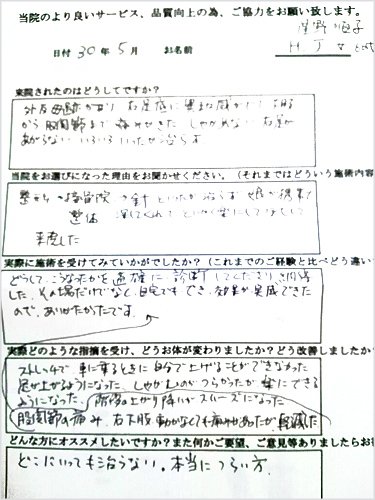 当院のより良いサービス、品質向上の為、ご協力をお願い致します。
日付 30年 5月 お名前
来院されたのはどうしてですか？
から股関節まで痛みがきた しゃがめない 右足が
あがらない いろいろいったが治らず
当院をお選びになった理由をお聞かせください。（それまではどういう施術内容
整体
来院した
実際に施術を受けてみていかがでしたか？（これまでのご経験と比べどう違い
どうして、こうなったかを適確に診断してくださり
した。その場だけでなく、自宅でもでき、効果が実感できた
ので、ありがたかったです。
実際どのような指摘を受け、どうお体が変わりましたか？どう改善しましたか
ストレッチで 車に乗るときに自分で上げることができなかった
足が上がるようになった。しゃがむのがつらかったが楽にできる
ようになった。階段の上がり降りがスムーズになった
股関節の痛み、右下肢 動かなくても痛みあったが軽減した
どんな方にオススメしたいですか？また何かご要望、ご意見等ありましたらお
どこにいっても治らない。本当につらい方。